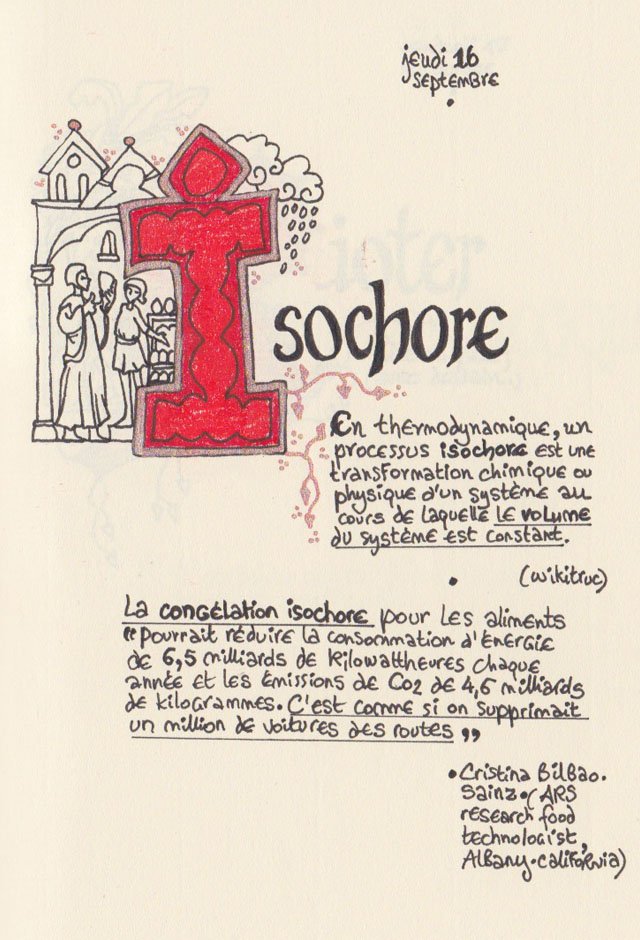 jeudi 16
septembre
Isochore
En thermodynamique, un
processus isochore est une
transformation chimique ou
physique d'un système au
cours de laquelle le volume
du système est constant.
(wikitruc)
La congélation isochore pour les aliments
"pourrait réduire la consommation d'énergie
de 6,5 milliards de kilowattheures chaque
année et les émissions de CO2 de 4,6 milliards
de kilogrammes. C'est comme si on supprimait
un million de voitures des routes"
•Cristina Bilbao.
Sainz•(ARS
research food
technologist,
Albany•california)